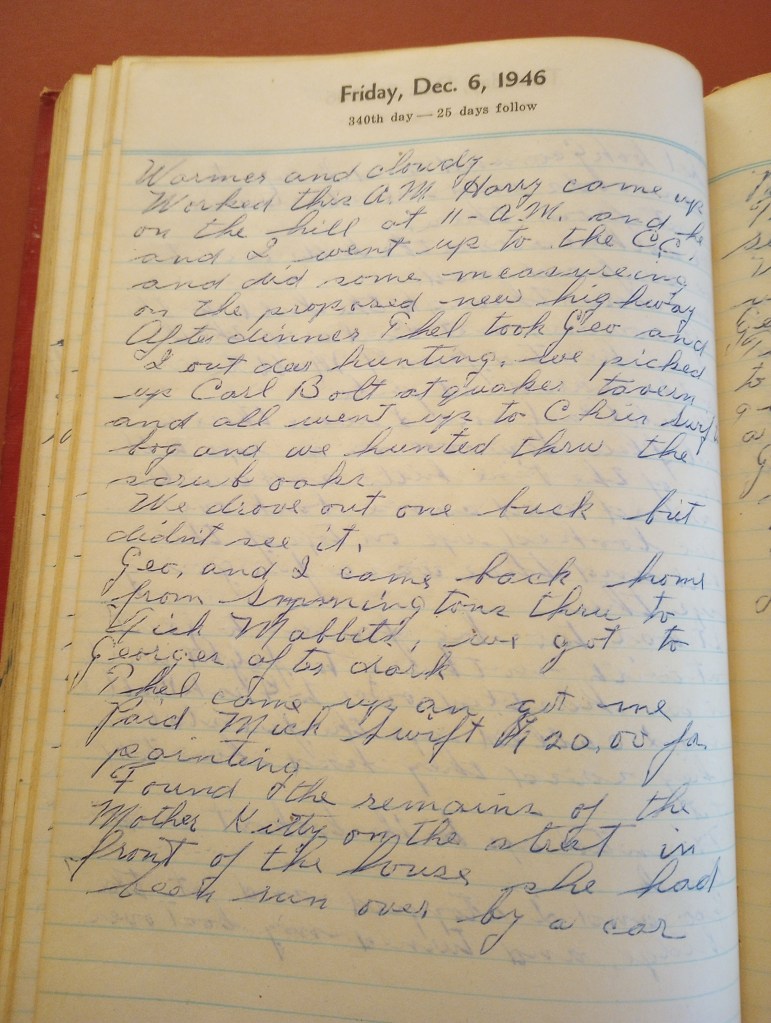 Friday, Dec. 6, 1946
340th day — 25 days follow
Warmer and cloudy
Worked this A.M. Harry came up
on the hill at 11-A.M. and he
and I went up to the C.C.
and did some measureing
on the proposed new highway
After dinner Phel took Geo and
I out dear hunting, we picked
up Carl Bolt at quaker tavern
and all went up to Chris
bog and we hunted thru the
scrub oaks
We drove out one buck but
didn't see it.
Geo, and I came back home
from thru to
Mabbits, we got to
Georges after dark
Phel came up an got me
Paid Mick Swift $120.00 for
painting
Found the remains of the
Mother Kitty on the street in
front of the house she had
been run over by a car